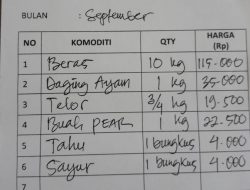 BULAN : September
NO KOMODITI QTY HARGA (Rp)
1 Beras 10 kg 115.000
2 Daging Ayam 1 kg 35.000
3 Telor 3/4 kg 19.500
4 Buah PEAR 1 kg 22.500
5 Tahu 1 bungkus 4.000
6 Sayur 1 bungkus 4.000
7